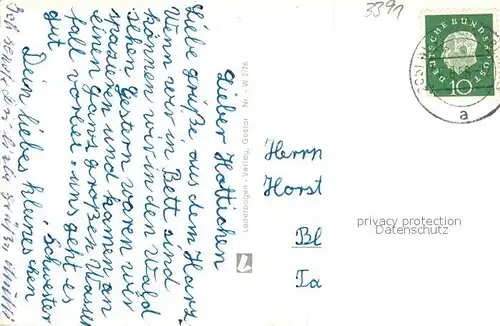 3391
DEUTSCHE BUNDESPOST
10
a
Lieber Hottichen
Liebe Grüße aus dem Harz.
Wenn wir in Bett sind
können wir in den Wald
sehen. Gestern waren wir
spazieren und kamen an
einen ganz großen Wasser
fall vorbei. uns geht es
gut
Dein liebes kleines
Schwesterchen
Lederbogen - Verlag, Goslar Nr. - W 2/76
Herrn
Horst
Bl
Ta
privacy protection
Datenschutz